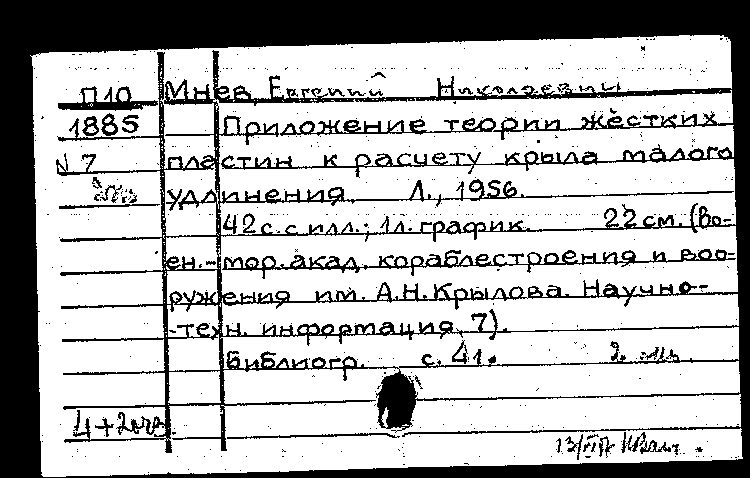 П10 Мнев, Евгений Николаевич
1885 Приложение теории жёстких
N 7 пластин к расчету крыла малого
удлинения. Л., 1956.
42с. с илл.; 1л. график. 22см. (Во-
ен.-мор. акад. кораблестроения и воо-
ружения им. А.Н.Крылова. Научно-
-техн. информация, 7).
Библиогр. с. 41. 2.
4+2